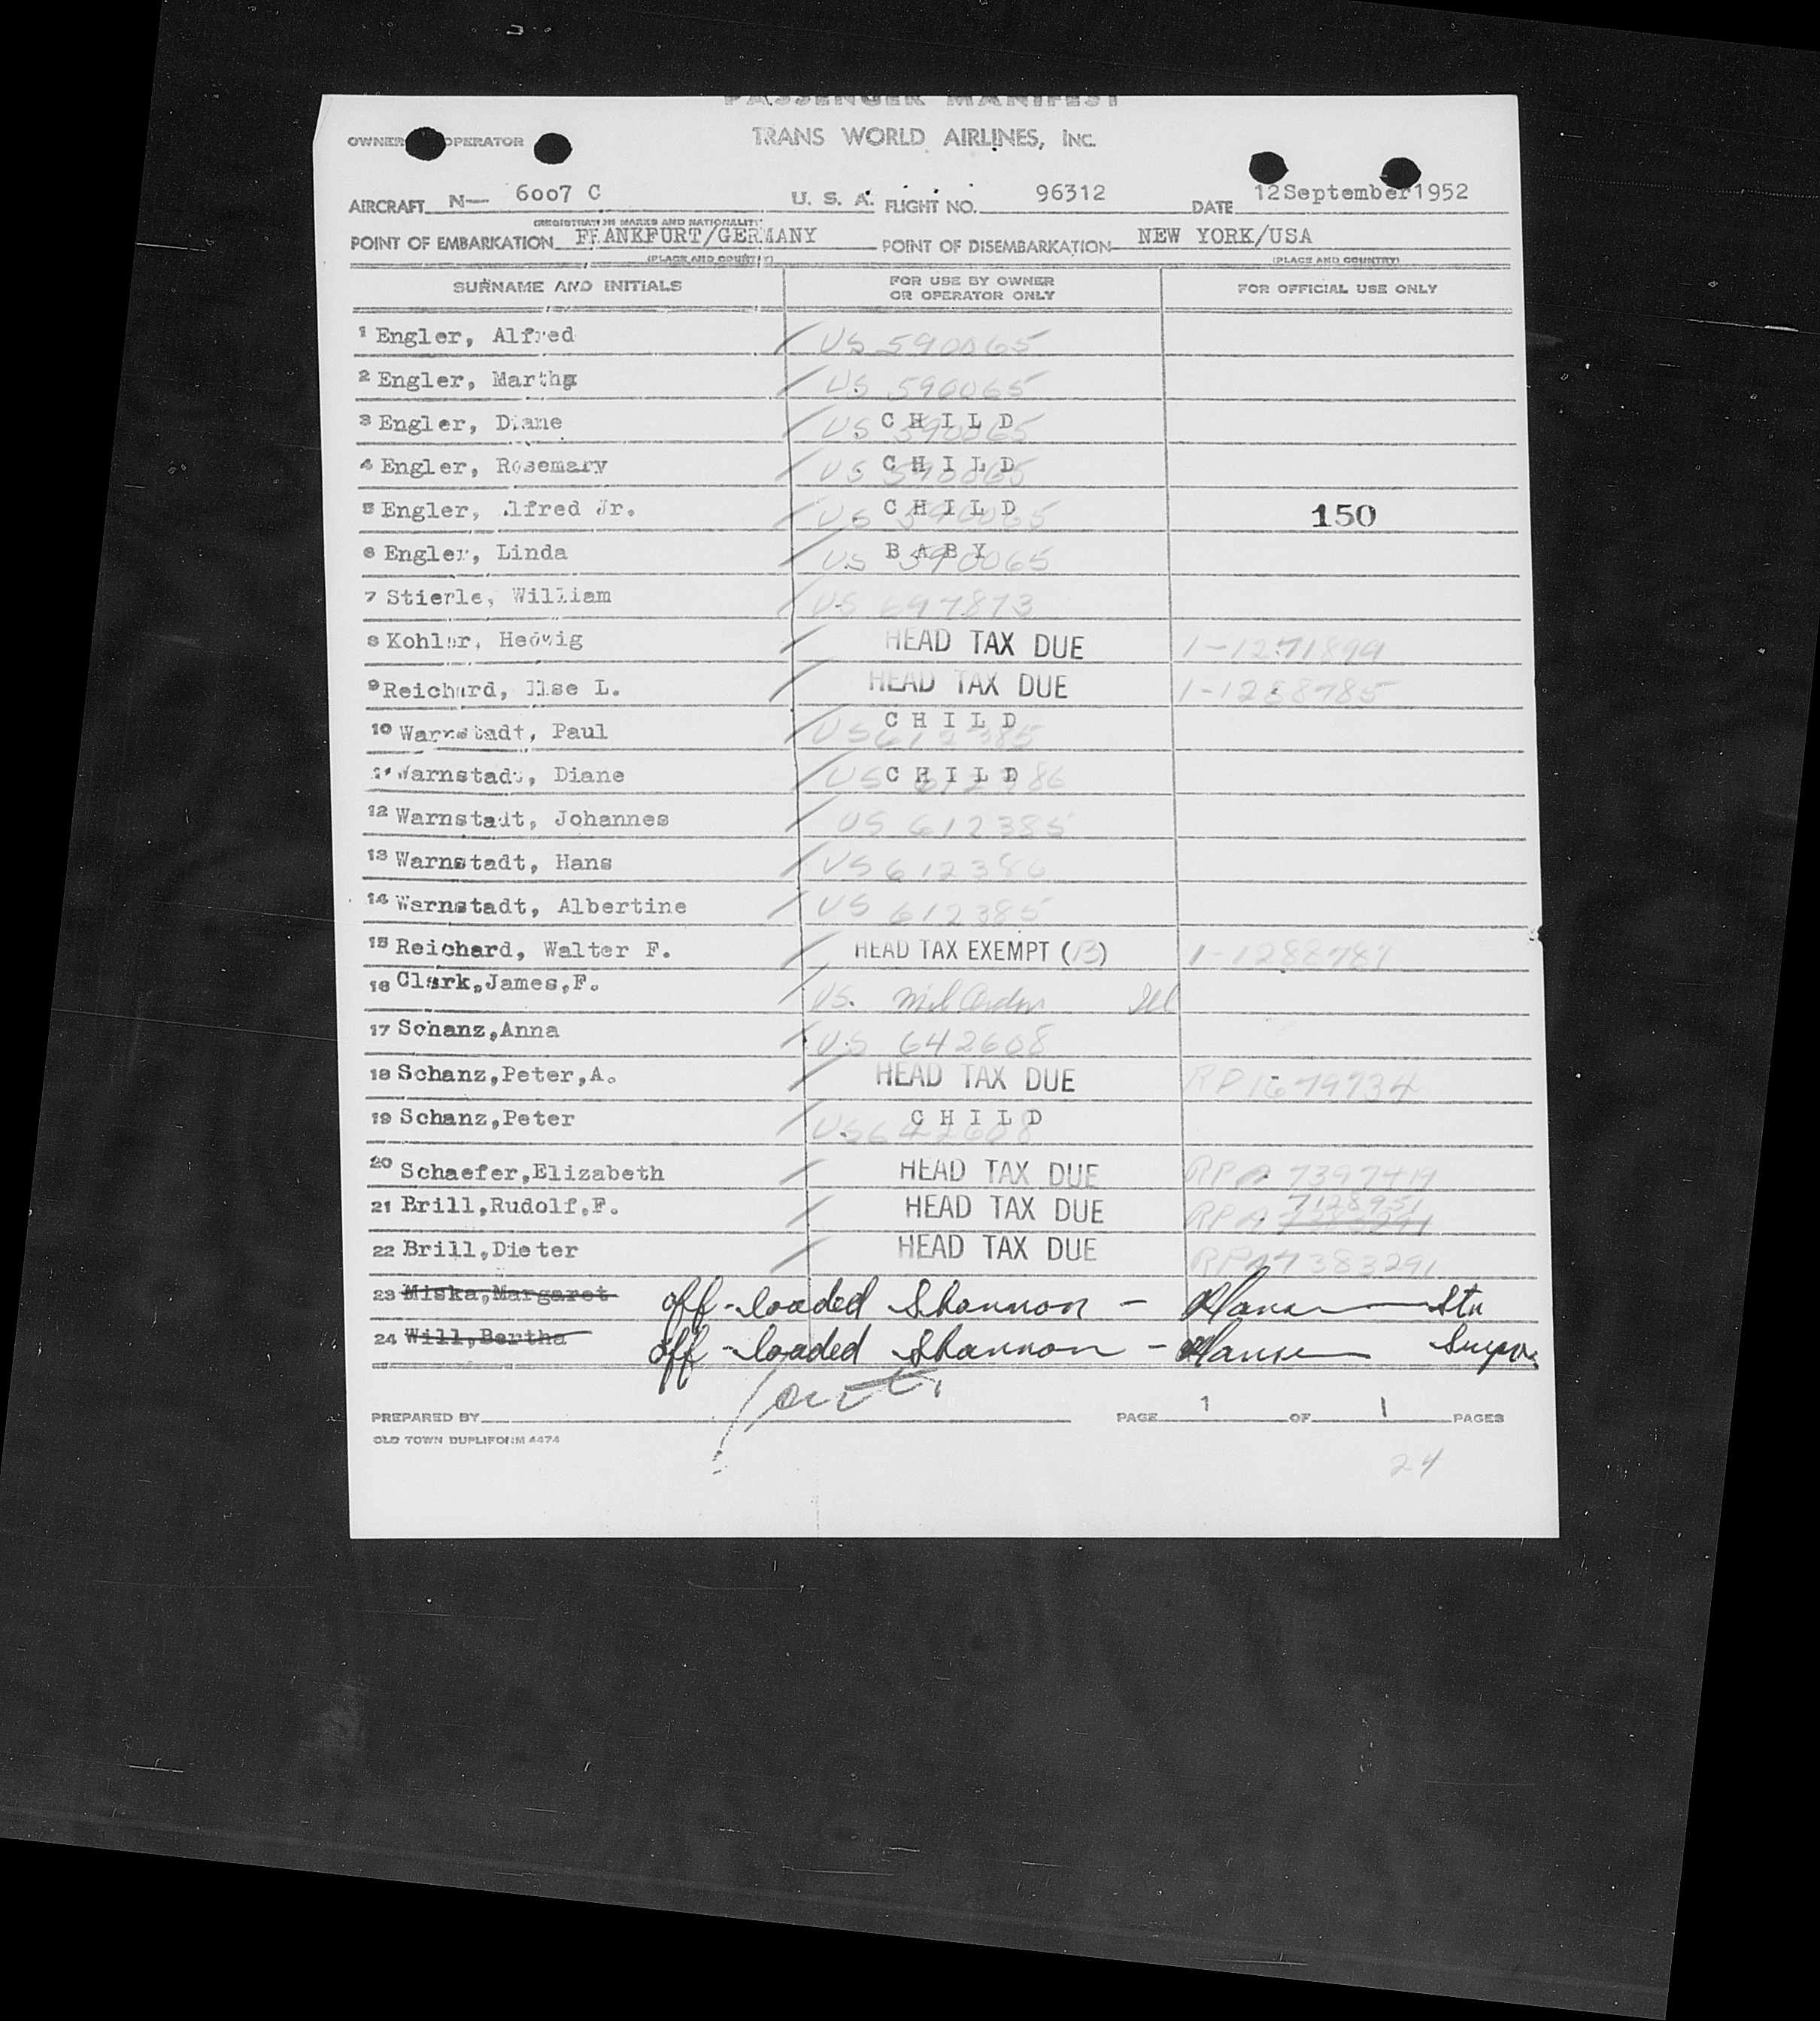 PASSENGER MANIFEST
OWNER OPERATOR TRANS WORLD AIRLINES, INC.
AIRCRAFT N— 6007 C U. S. A. FLIGHT NO. 96312 DATE 12September1952
(REGISTRATION MARKS AND NATIONALITY)
POINT OF EMBARKATION FRANKFURT/GERMANY POINT OF DISEMBARKATION NEW YORK/USA
(PLACE AND COUNTRY) (PLACE AND COUNTRY)
SURNAME AND INITIALS FOR USE BY OWNER OR OPERATOR ONLY FOR OFFICIAL USE ONLY
1 Engler, Alfred US 590065
2 Engler, Martha US 590065
3 Engler, Diane CHILD US 590065
4 Engler, Rosemary CHILD US 590065
5 Engler, Alfred Jr. CHILD US 590065 150
6 Engler, Linda BABY US 590065
7 Stierle, William US 697873
8 Kohler, Hedwig HEAD TAX DUE 1-1271899
9 Reichard, Ilse L. HEAD TAX DUE 1-1288785
10 Warnstadt, Paul CHILD US 612385
11 Warnstadt, Diane CHILD US 612386
12 Warnstadt, Johannes US 612385
13 Warnstadt, Hans US 612386
14 Warnstadt, Albertine US 612385
15 Reichard, Walter F. HEAD TAX EXEMPT (13) 1-1288787
16 Clark,James,F. US.
17 Schanz,Anna US 642608
18 Schanz,Peter,A. HEAD TAX DUE RP 1679734
19 Schanz,Peter CHILD US 642608
20 Schaefer,Elizabeth HEAD TAX DUE RP A 7397419
21 Brill,Rudolf,F. HEAD TAX DUE RP A 7128951
22 Brill,Dieter HEAD TAX DUE RP A 7383291
23 Miska,Margaret off-loaded Shannon -
24 Will,Bertha off-loaded Shannon -
PREPARED BY PAGE 1 OF 1 PAGES
OLD TOWN DUPLIFORM 4474
24